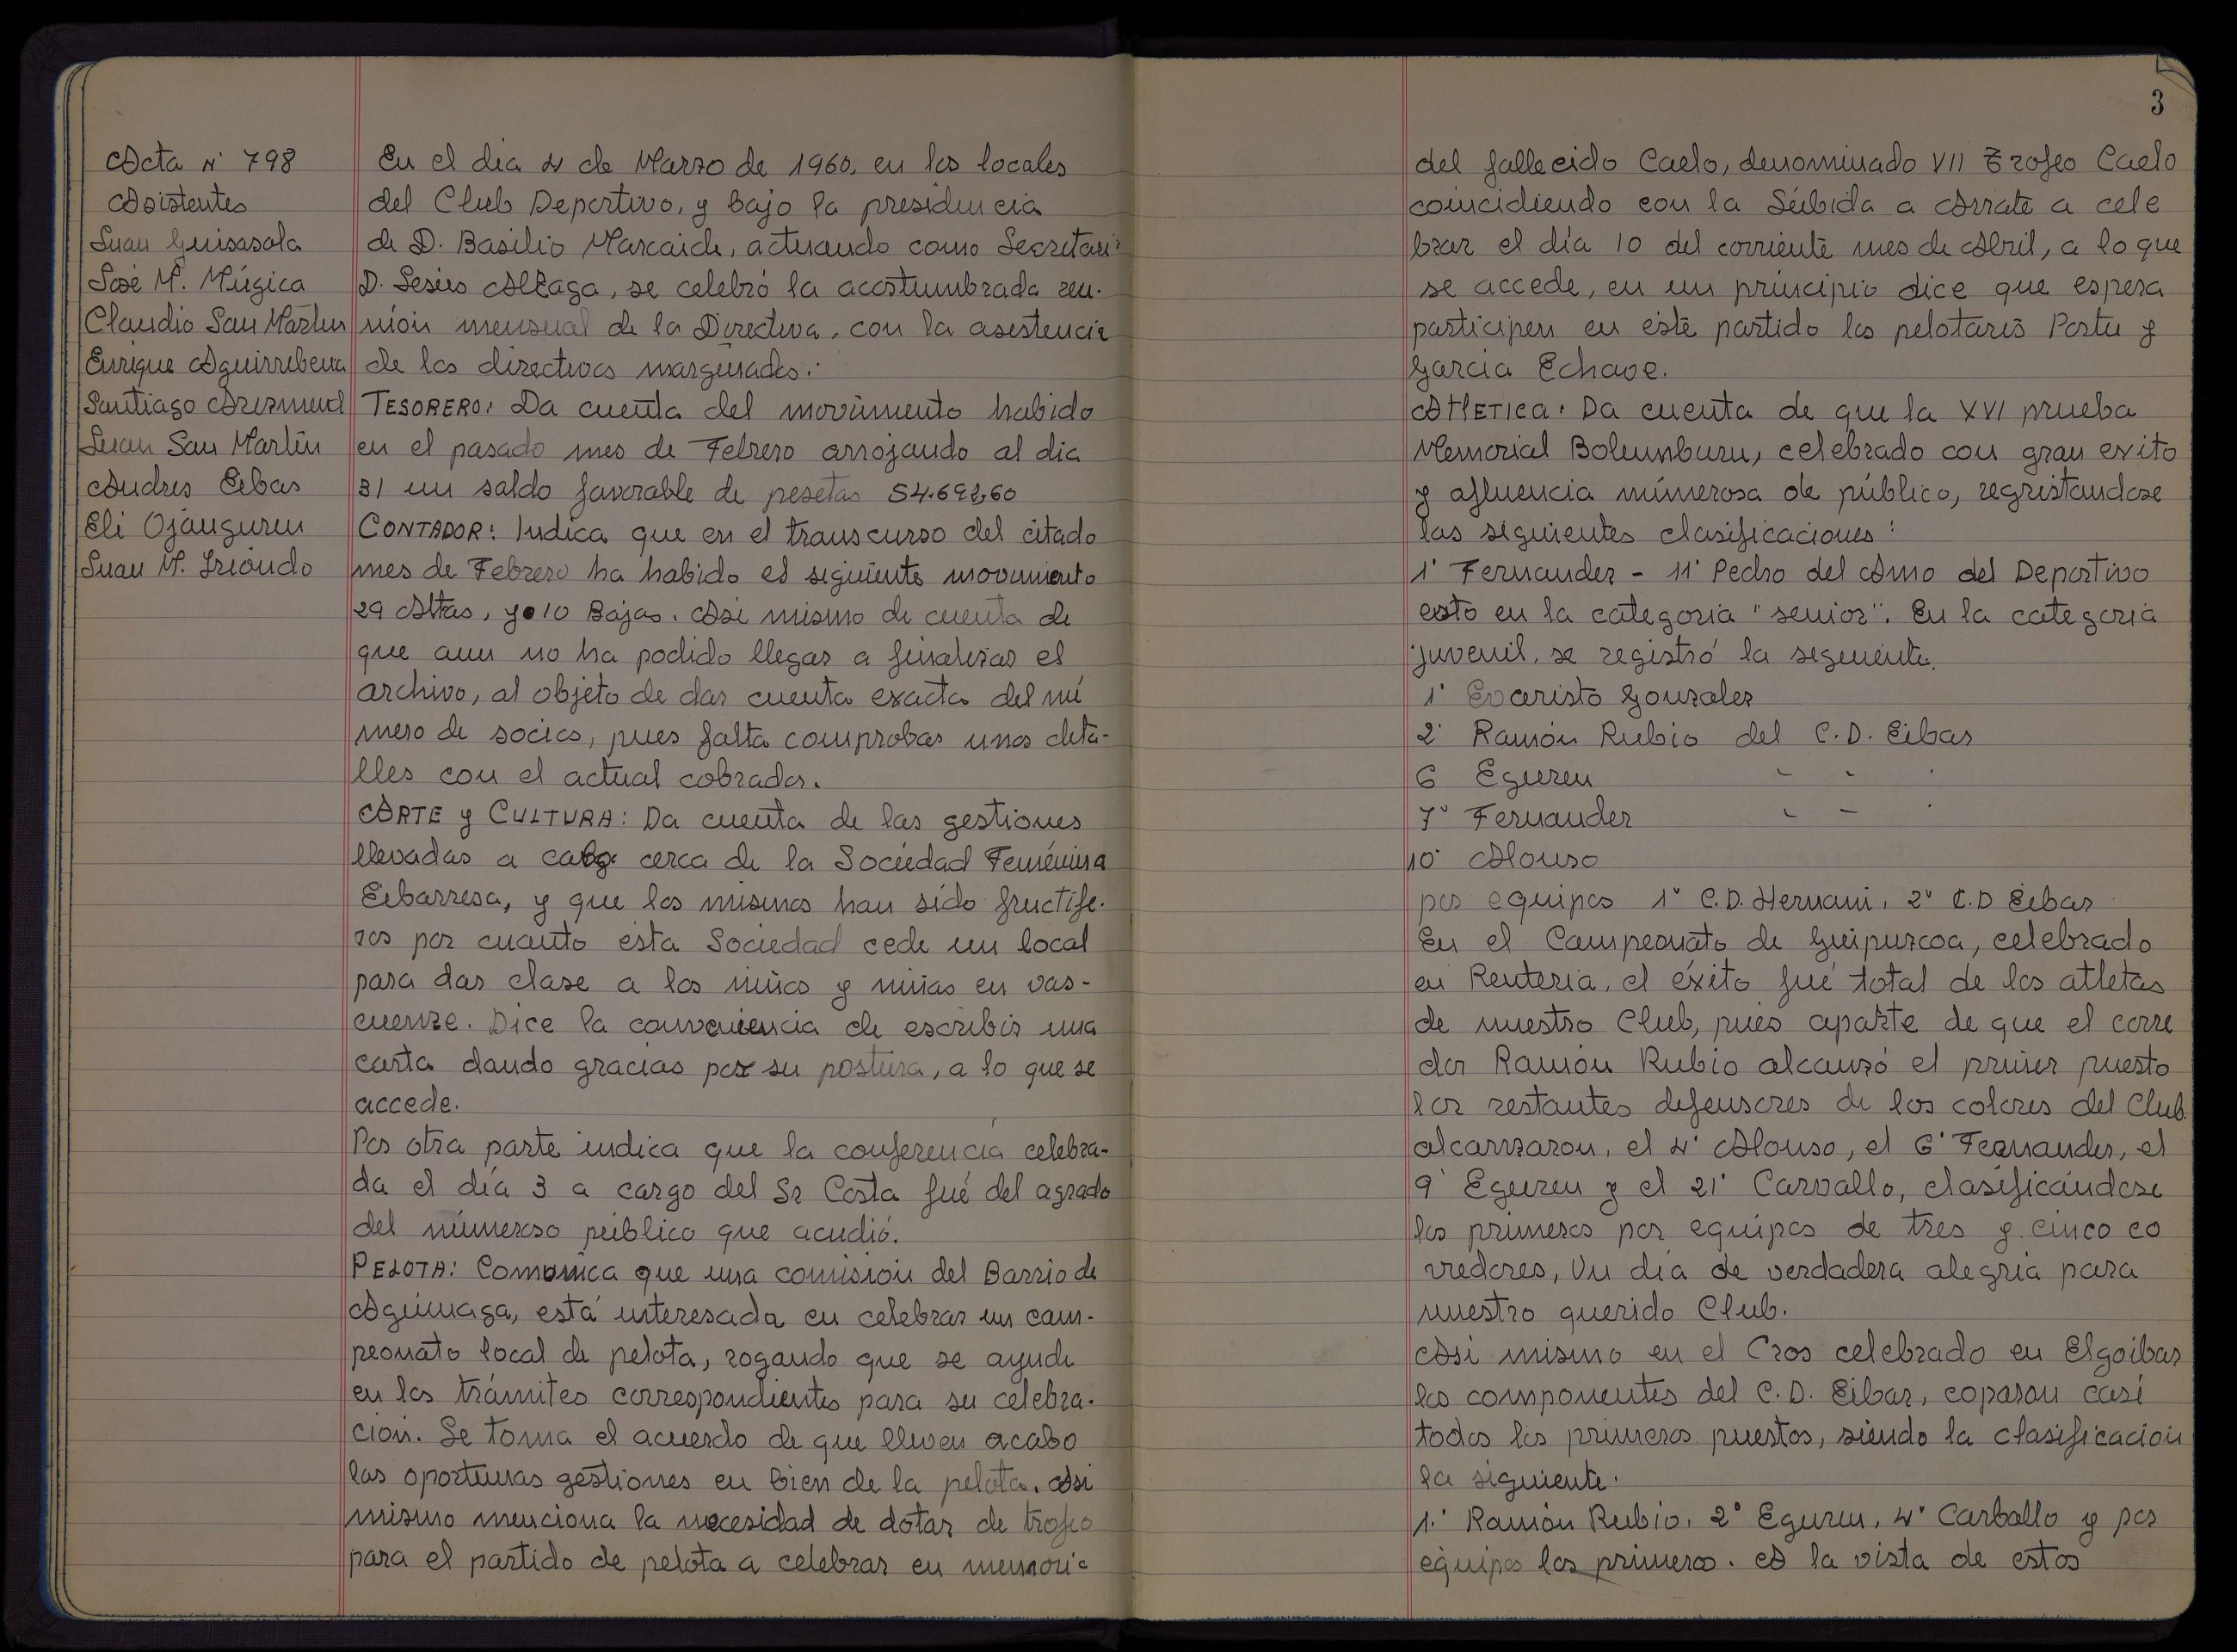 Acta Nº 798
Asistentes
Juan Guisasola
José M. Múgica
Claudio San Martin
Enrique Aguirrebeña
Santiago Arizmend
Juan San Martin
Andres Eibar
Eli Ojanguren
Juan M. Iriondo
En el dia 4 de Marzo de 1960, en los locales
del Club Deportivo, y bajo la presidencia
de D. Basilio Marcaide, actuando como Secretari
D. Jesús Alzaga, se celebró la acostumbrada reu-
nión mensual de la Directiva, con la asistencia
de los directivos marginados.
TESORERO: Da cuenta del movimiento habido
en el pasado mes de Febrero arrojando al dia
31 un saldo favorable de pesetas 54.692,60
CONTADOR: Indica que en el transcurso del citado
mes de Febrero ha habido el siguiente movimiento
29 Altas, y 10 Bajas. Asi mismo de cuenta de
que aun no ha podido llegar a finalizar el
archivo, al objeto de dar cuenta exacta del nú
mero de socios, pues falta comprobar unos deta-
lles con el actual cobrador.
ARTE y CULTURA: Da cuenta de las gestiones
llevadas a cabo cerca de la Sociedad Femenina
Eibarresa, y que los mismos han sido fructife-
ros por cuanto esta Sociedad cede un local
para dar clase a los niños y niñas en vas-
cuenze. Dice la conveniencia de escribir una
carta dando gracias por su postura, a lo que se
accede.
Por otra parte indica que la conferencia celebra-
da el día 3 a cargo del Sr Costa fué del agrado
del númeroso público que acudió.
PELOTA: Comunica que una comisión del Barrio de
Aguinaga, está interesada en celebrar un cam-
peonato local de pelota, rogando que se ayude
en los trámites correspondientes para su celebra-
ción. Se toma el acuerdo de que lleven acabo
las oportunas gestiones en bien de la pelota. Asi
mismo menciona la necesidad de dotar de trofeo
para el partido de pelota a celebrar en memoria
3
del fallecido Caelo, denominado VII Trofeo Caelo
coincidiendo con la Súbida a Arrate a cele
brar el día 10 del corriente mes de Abril, a lo que
se accede, en un principio dice que espera
participen en este partido los pelotaris Portu y
Garcia Echave.
ATLETICA: Da cuenta de que la XVI prueba
Memorial Bolumburu, celebrado con gran exito
y afluencia númerosa de público, regristandose
las siguientes clasificaciones:
1º Fernandez - 11º Pedro del Amo del Deportivo
esto en la categoria "senior". En la categoria
juvenil, se registró la seguiente.
1º Evaristo Gonzalez
2º Ramón Rubio del C.D. Eibar
6 Eguren " " "
7º Fernandez " " "
10º Alonso
por equipos 1º C.D. Hernani, 2º C.D Eibar
En el Campeonato de Guipuzcoa, celebrado
en Renteria, el éxito fué total de los atletas
de nuestro Club, pues aparte de que el corre
dor Ramón Rubio alcanzó el primer puesto
los restantes defensores de los colores del Club
alcanzaron, el 4º Alonso, el 6º Fernandez, el
9º Eguren y el 21º Carvallo, clasificándose
los primeros por equipos de tres y cinco co
rredores, Un día de verdadera alegria para
nuestro querido Club.
Asi mismo en el Cros celebrado en Elgoibar
los componentes del C.D. Eibar, coparon casi
todos los primeros puestos, siendo la clasificación
la siguiente.
1.º Ramón Rubio, 2º Eguren, 4º Carballo y por
equipos los primeros. A la vista de estos